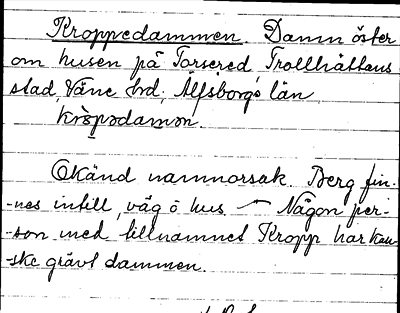 Kroppedammen Damm öster
om husen på Torsered Trollhättans
stad, Väne hd, Älfsborgs län
kròpədamən.
Okänd namnorsak. Berg fin-
-nes intill, väg o hus. — Någon per-
-son med tillnamnet Kropp har kan-
-ske grävt dammen.